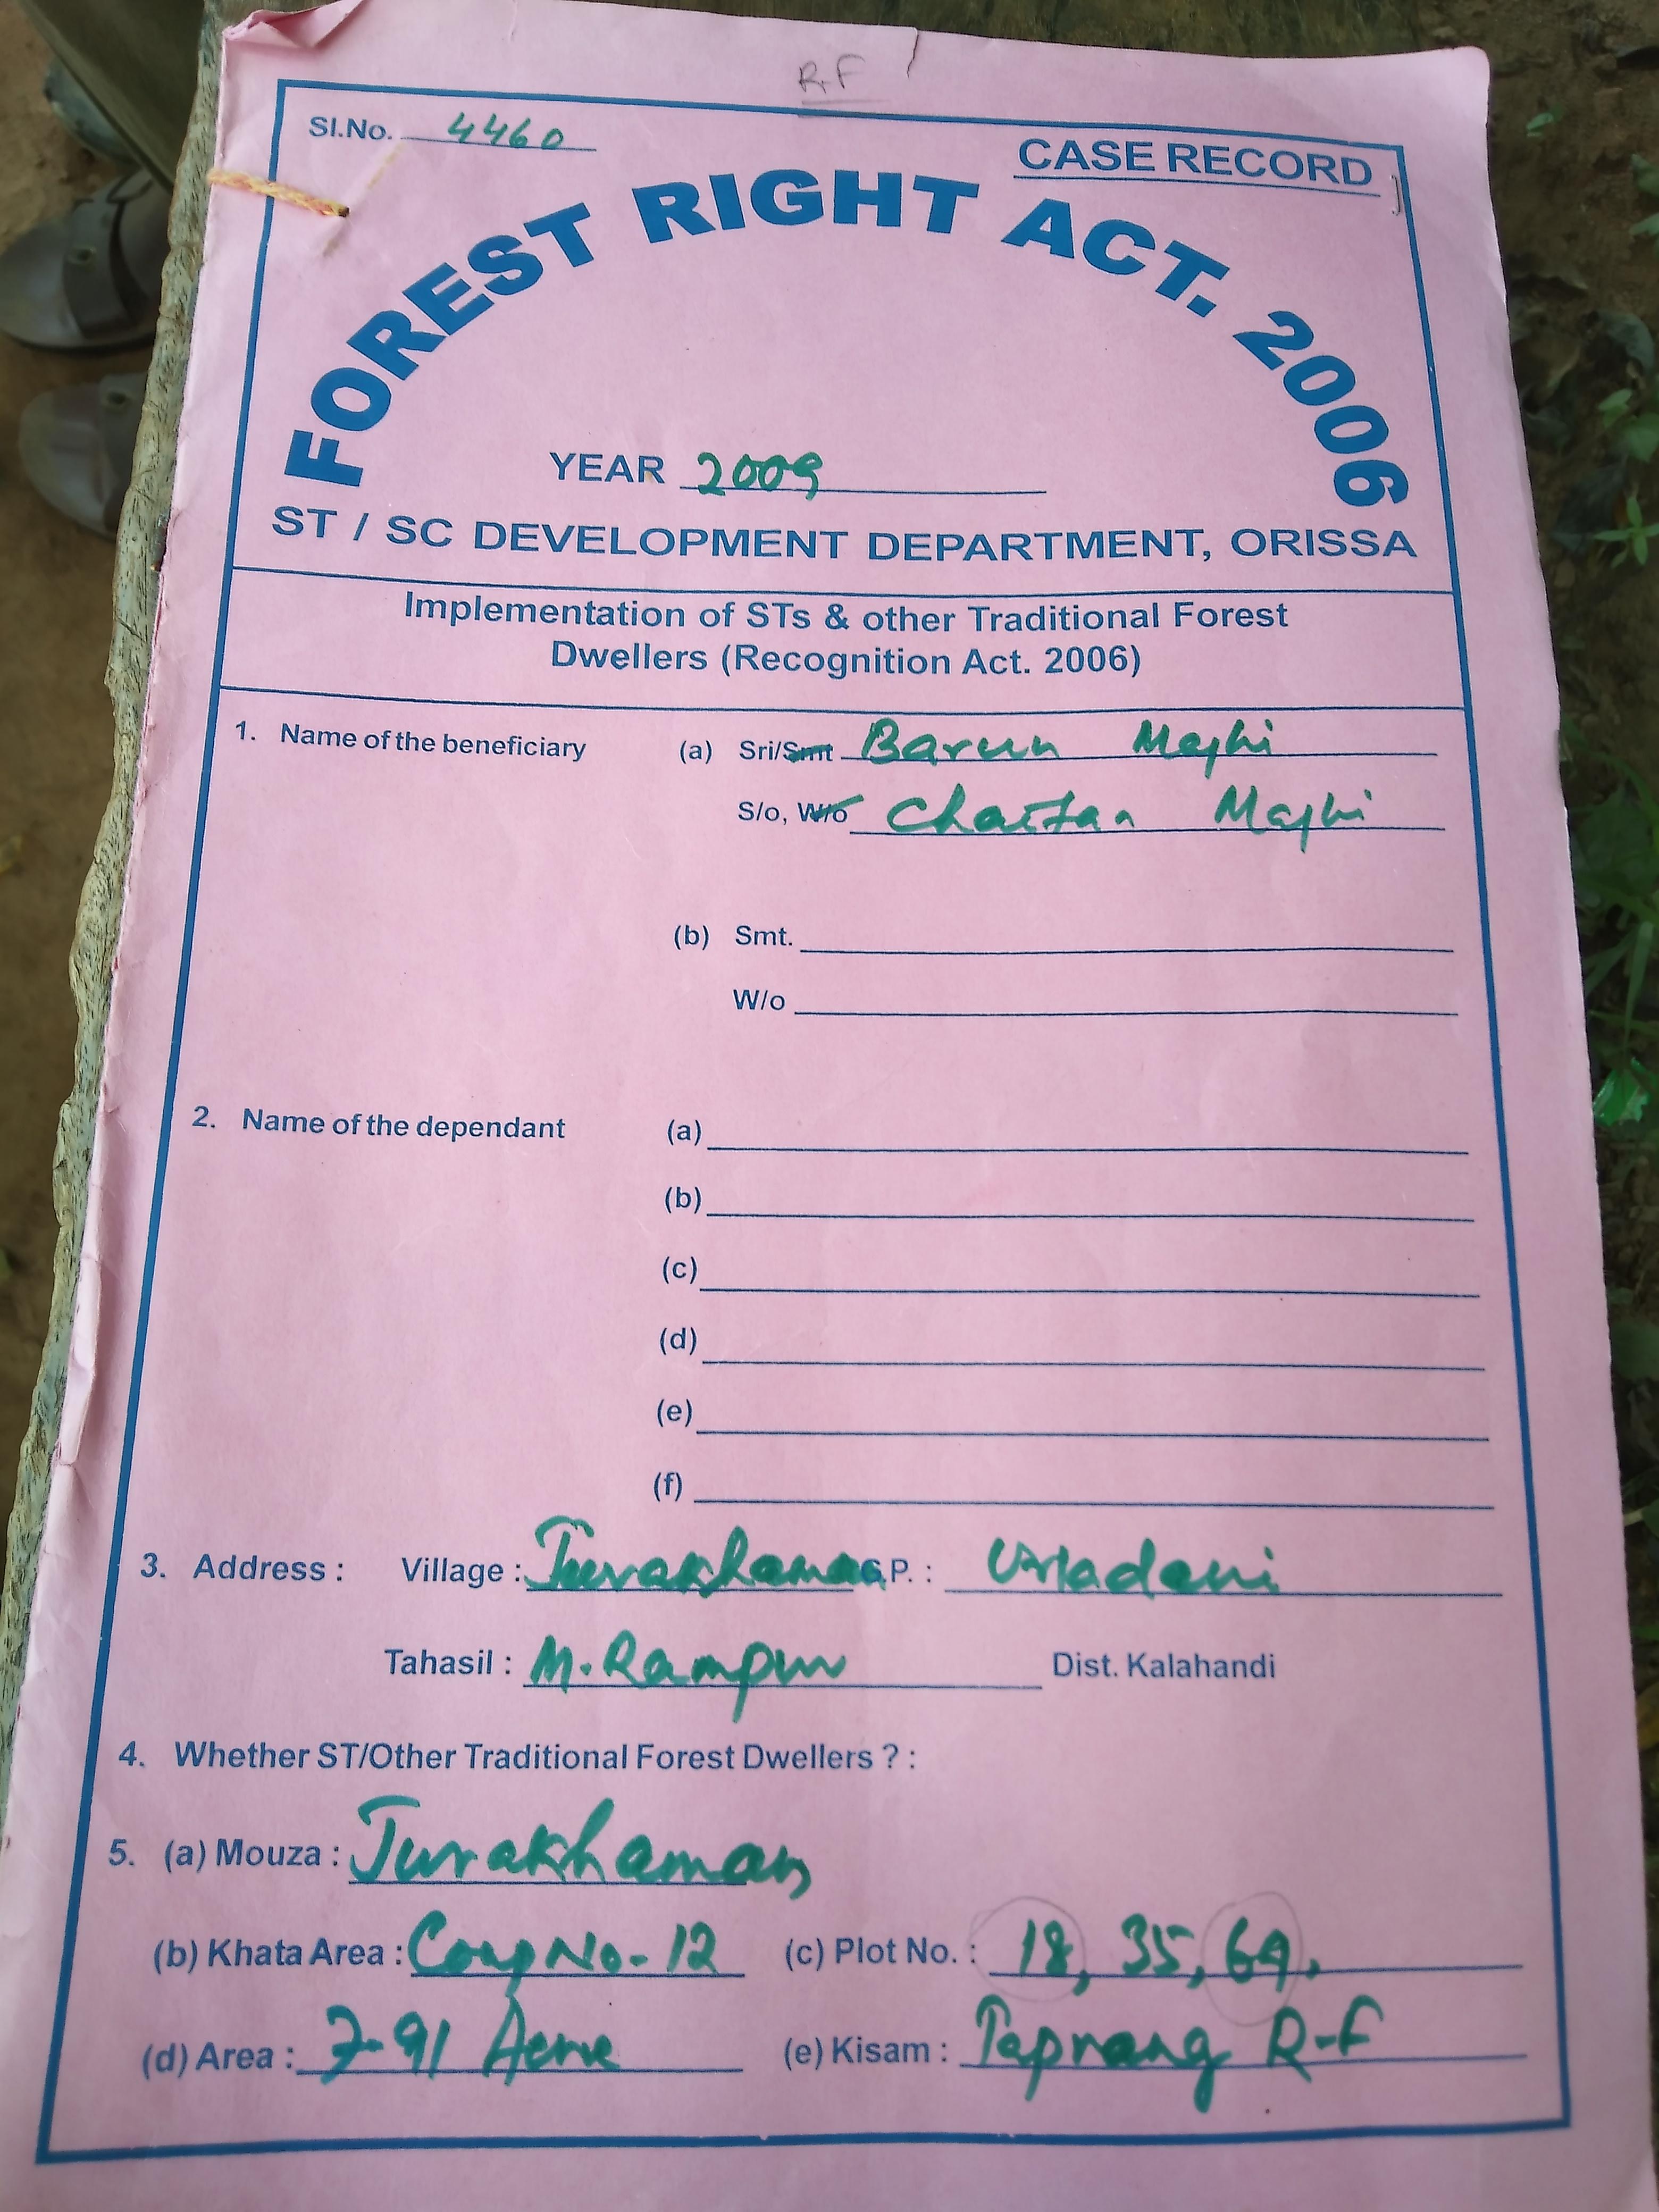 R.F
Sl.No. 4460
CASE RECORD
FOREST RIGHT ACT. 2006
YEAR 2009
ST / SC DEVELOPMENT DEPARTMENT, ORISSA
Implementation of STs & other Traditional Forest
Dwellers (Recognition Act. 2006)
1. Name of the beneficiary (a) Sri/Smt Barun Majhi
S/o, W/o Chaitan Majhi
(b) Smt.
W/o
2. Name of the dependant (a)
(b)
(c)
(d)
(e)
(f)
3. Address : Village : Turakhaman G.P. : Urladani
Tahasil : M. Rampur Dist. Kalahandi
4. Whether ST/Other Traditional Forest Dwellers ? :
5. (a) Mouza : Turakhaman
(b) Khata Area : No- 12 (c) Plot No. : 18, 35, 64,
(d) Area : 7-91 Acre (e) Kisam : Taprang R-F